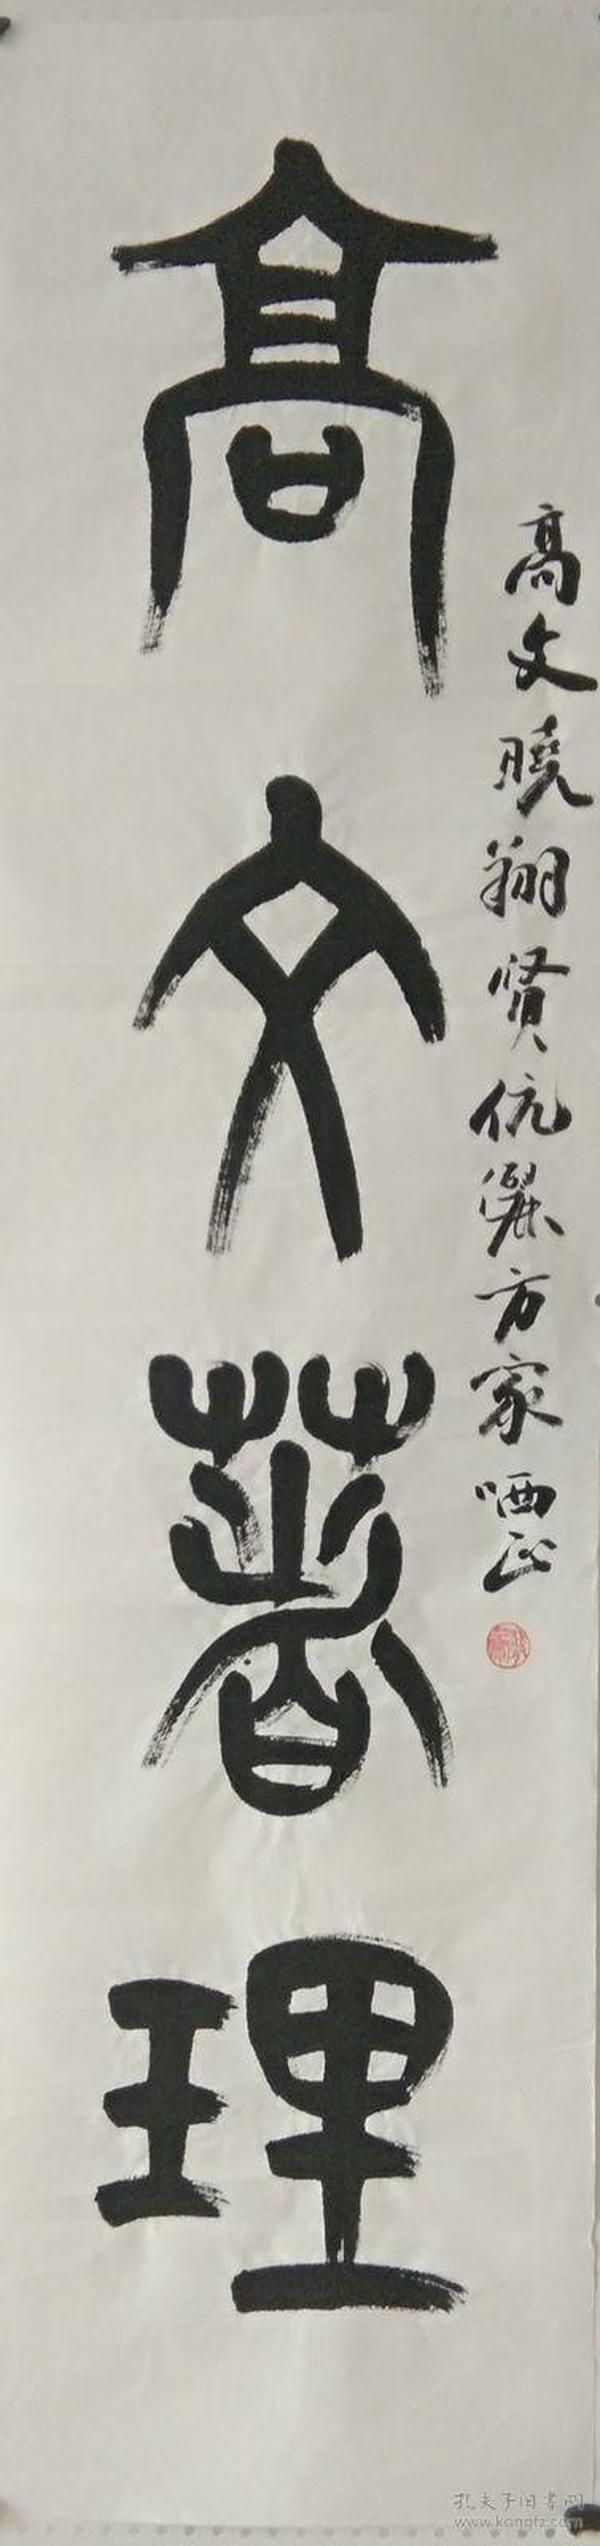 高文曉翔贤伉儷方家哂正
高文著理
孔夫子旧书网
www.kongfz.com